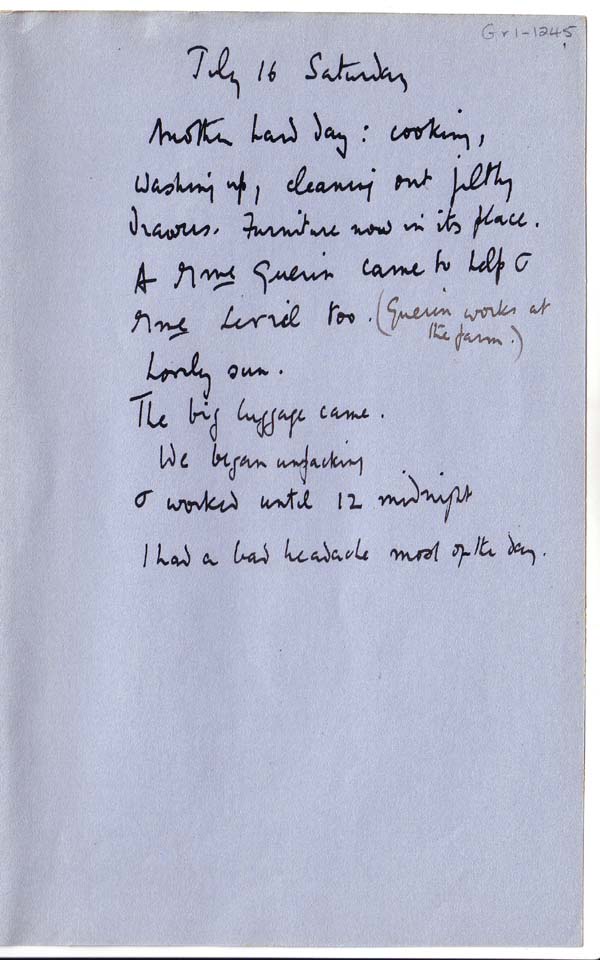 Gr1-1245
July 16 Saturday
Another hard day: cooking,
washing up, cleaning out filthy
drawers. Furniture now in its place.
A Mme Guerin came to help &
Mme too. (Guerin works at
the farm.)
Lovely sun.
The big luggage came.
We began unpacking
& worked until 12 midnight
I had a bad headache most of the day.